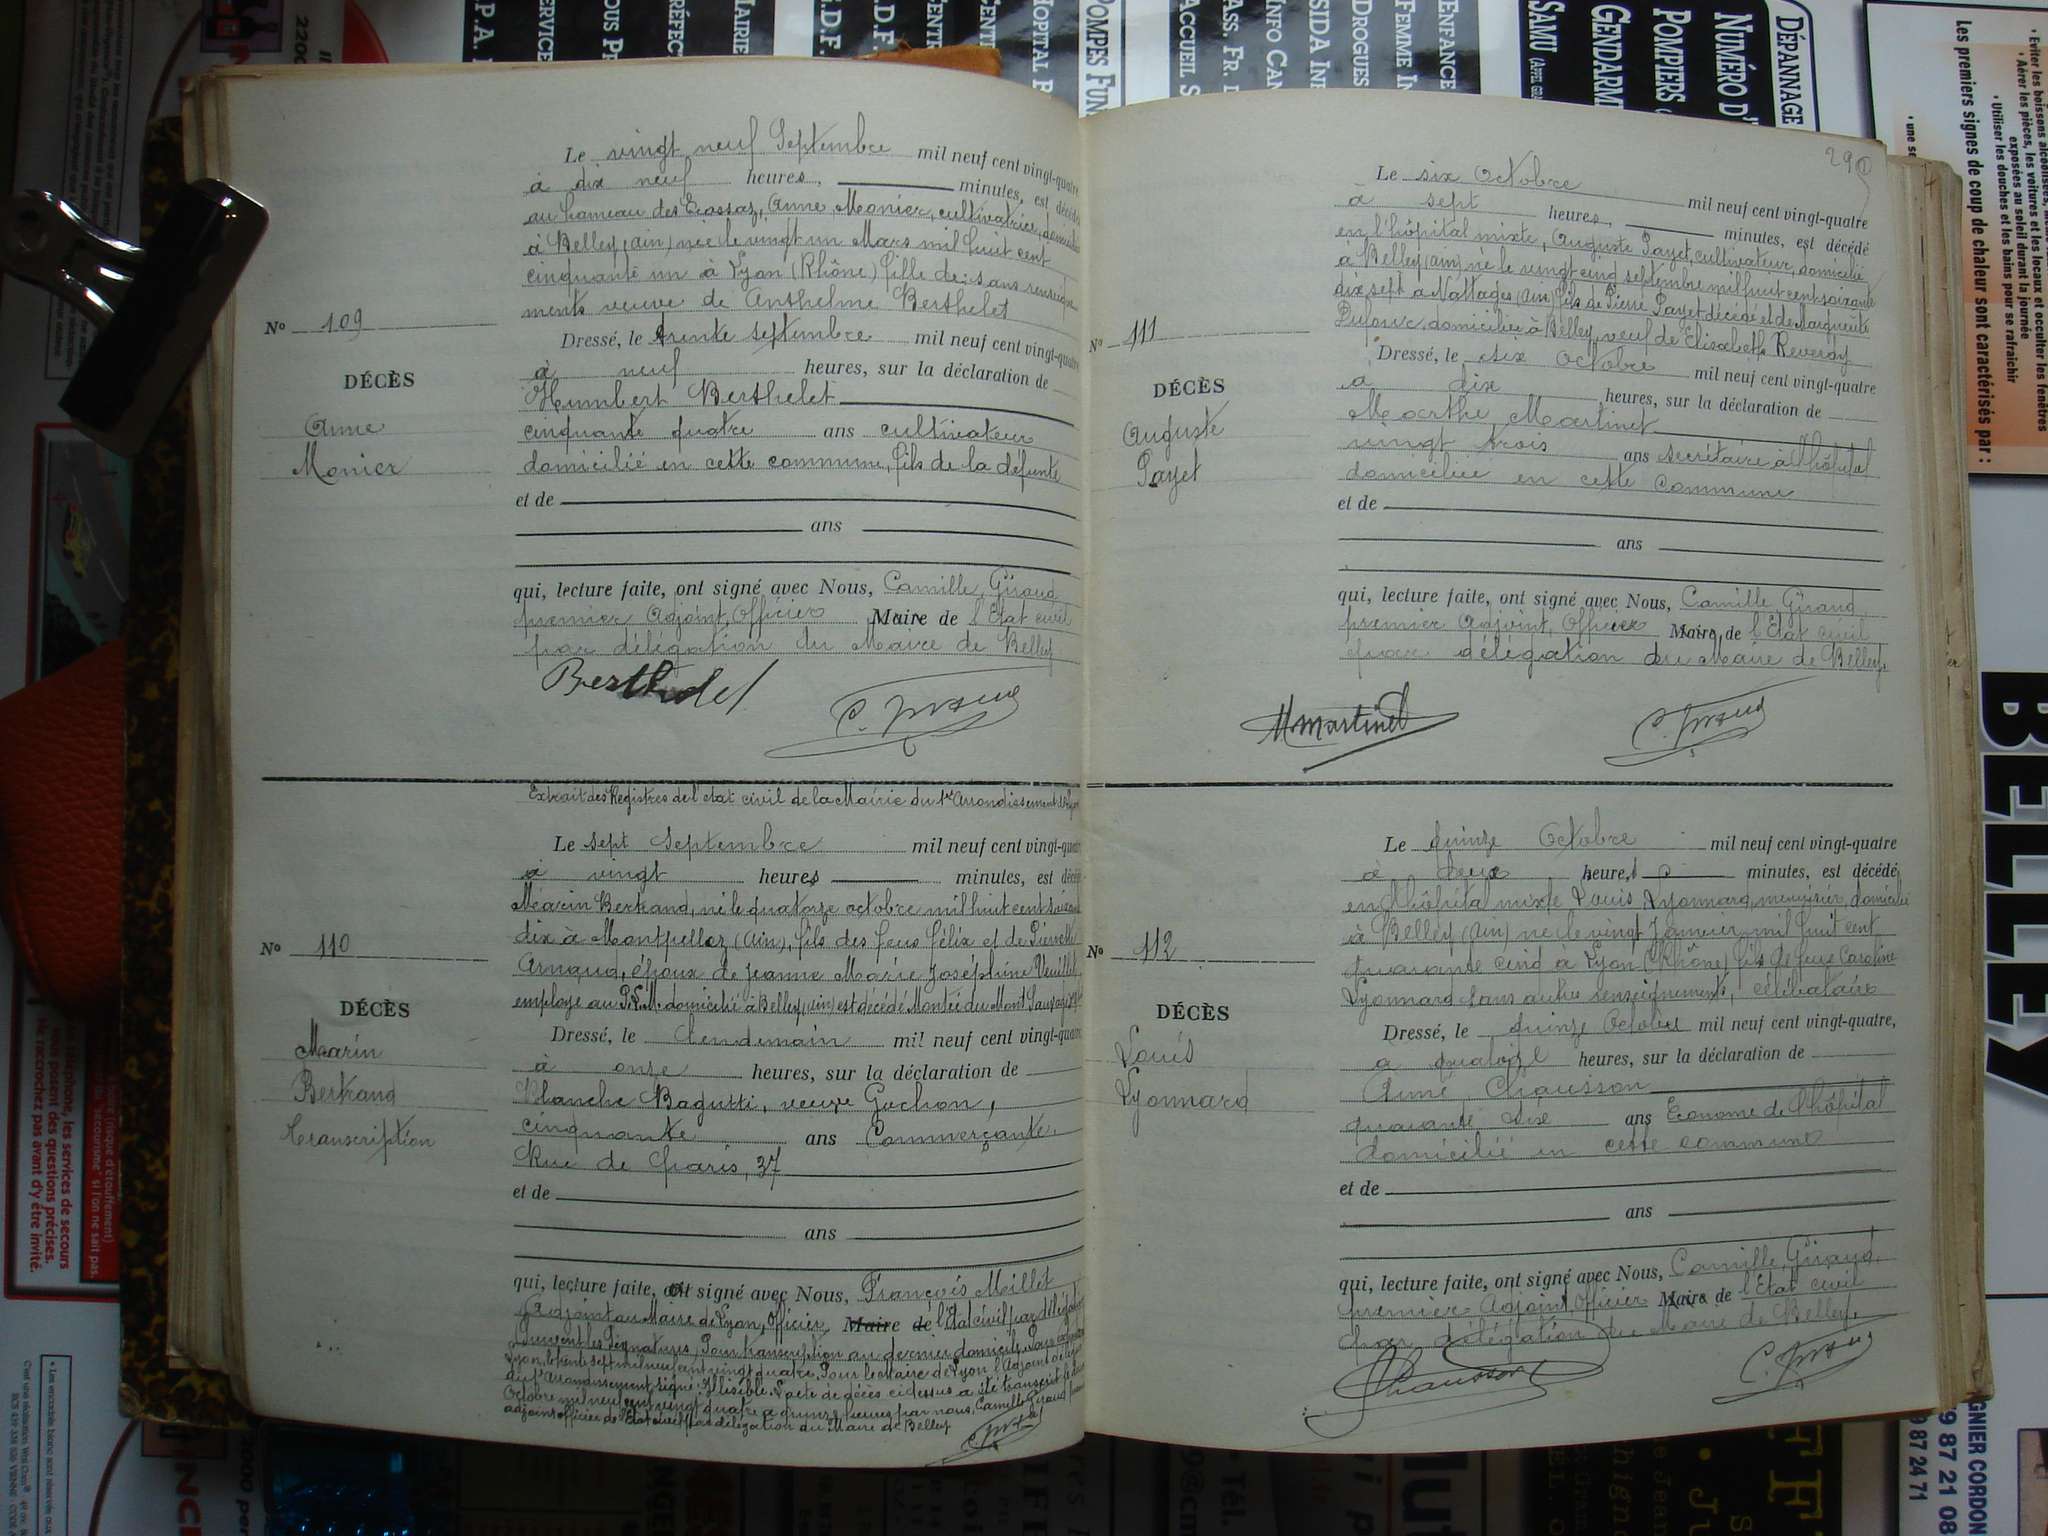 Le vingt neuf Septembre mil neuf cent vingt-quatre
à dix neuf heures, minutes, est décédée
au hameau des Ecassaz, Anne Monier, cultivatrice, domiciliée
à Belley (Ain) née le vingt un Mars mil huit cent
cinquante un à Lyon (Rhône) fille de: sans renseigne
ments veuve de Anthelme Berthelet
Nº 109
Dressé, le trente septembre mil neuf cent vingt-quatre
à neuf heures, sur la déclaration de
DÉCÈS
Humbert Berthelet
Anne
cinquante quatre ans cultivateur
Monier
domicilié en cette commune, fils de la défunte
et de
ans
qui, lecture faite, ont signé avec Nous, Camille Giraud
premier Adjoint, Officier Maire de l'Etat civil
par délégation du Maire de Belley
Berthelet
C. Giraud
Extrait des Registres de l'état civil de la Mairie du 1er Arrondissement de Lyon
Le sept Septembre mil neuf cent vingt-quatre
à vingt heures minutes, est décédé
Marin Bertrand, né le quatorze octobre mil huit cent soixante
dix à Montpellaz (Ain), fils des feus Félix et de Pierrette
Nº 110
Arnaud, époux de Jeanne Marie Joséphine
employé au P.L.M. domicilié à Belley (Ain) est décédé Montée du Mont Sauvage
DÉCÈS
Dressé, le lendemain mil neuf cent vingt-quatre
Marin
à onze heures, sur la déclaration de
Bertrand
Blanche Bagutti, veuve Guchon,
transcription
cinquante ans Commerçante,
Rue de Paris, 37
et de
ans
qui, lecture faite, ont signé avec Nous, François Millet
Adjoint au Maire de Lyon, Officier Maire de l'Etat civil par délégation
Suivent les Signatures, Pour transcription au dernier domicile,
Lyon, le trente sept mil neuf cent vingt quatre, Pour le Maire de Lyon l'Adjoint délégué
au 1er Arrondissement, signé: Illisible. L'acte de décès ci dessus a été transcrit le
Octobre mil neuf cent vingt quatre à quinze heures par nous, Camille Giraud premier
adjoint officier de l'Etat civil par délégation du Maire de Belley
C. Giraud
29
Le six Octobre mil neuf cent vingt-quatre
à sept heures, minutes, est décédé
en l'hôpital mixte, Auguste Payet, cultivateur, domicilié
à Belley (Ain) né le vingt cinq septembre mil huit cent soixante
dix sept à Nattages (Ain) fils de Pierre Payet décédé et de Marguerite
Dufour, domiciliée à Belley, veuf de Elisabeth Reverdy
Nº 111
Dressé, le six Octobre mil neuf cent vingt-quatre
DÉCÈS
à dix heures, sur la déclaration de
Auguste
Marthe Martinet
Payet
vingt trois ans secrétaire à l'hôpital
domiciliée en cette commune
et de
ans
qui, lecture faite, ont signé avec Nous, Camille Giraud
premier Adjoint, Officier Maire de l'Etat civil
par délégation du Maire de Belley
M. Martinet
C. Giraud
Le quinze Octobre mil neuf cent vingt-quatre
à deux heures minutes, est décédé,
en l'hôpital mixte Louis Lyonnard, menuisier, domicilié
à Belley (Ain) né le vingt Janvier mil huit cent
Nº 112
quarante cinq à Lyon (Rhône) fils de feue Caroline
Lyonnard sans autres renseignements, célibataire
DÉCÈS
Dressé, le quinze Octobre mil neuf cent vingt-quatre,
Louis
a quatorze heures, sur la déclaration de
Lyonnard
Aimé Chausson
quarante six ans Econome de l'hôpital
domicilié en cette commune
et de
ans
qui, lecture faite, ont signé avec Nous, Camille Giraud,
premier Adjoint, Officier Maire de l'Etat civil
par délégation du Maire de Belley
Chausson
C. Giraud
POMPES FUN
HOPITAL
ACCUEIL S
ASS. FR.
INFO CAN
SIDA INF
DROGUES
FEMME IN
ENFANCE
SAMU
GENDARM
POMPIERS
NUMÉRO D'
DÉPANNAGE
Les premiers signes de coup de chaleur sont caractérisés par :
• Utiliser les douches et les bains pour se rafraichir
exposées au soleil durant la journée
• Aérer les pièces, les voitures et les locaux et occulter les fenêtres
• Eviter les boissons alcoolisées,
BELLEY
GNIER CORDON
9 87 21 08
9 87 24 71
téléphone, les services de secours
vous posent des questions précises.
Ne raccrochez pas avant d'y être invité.